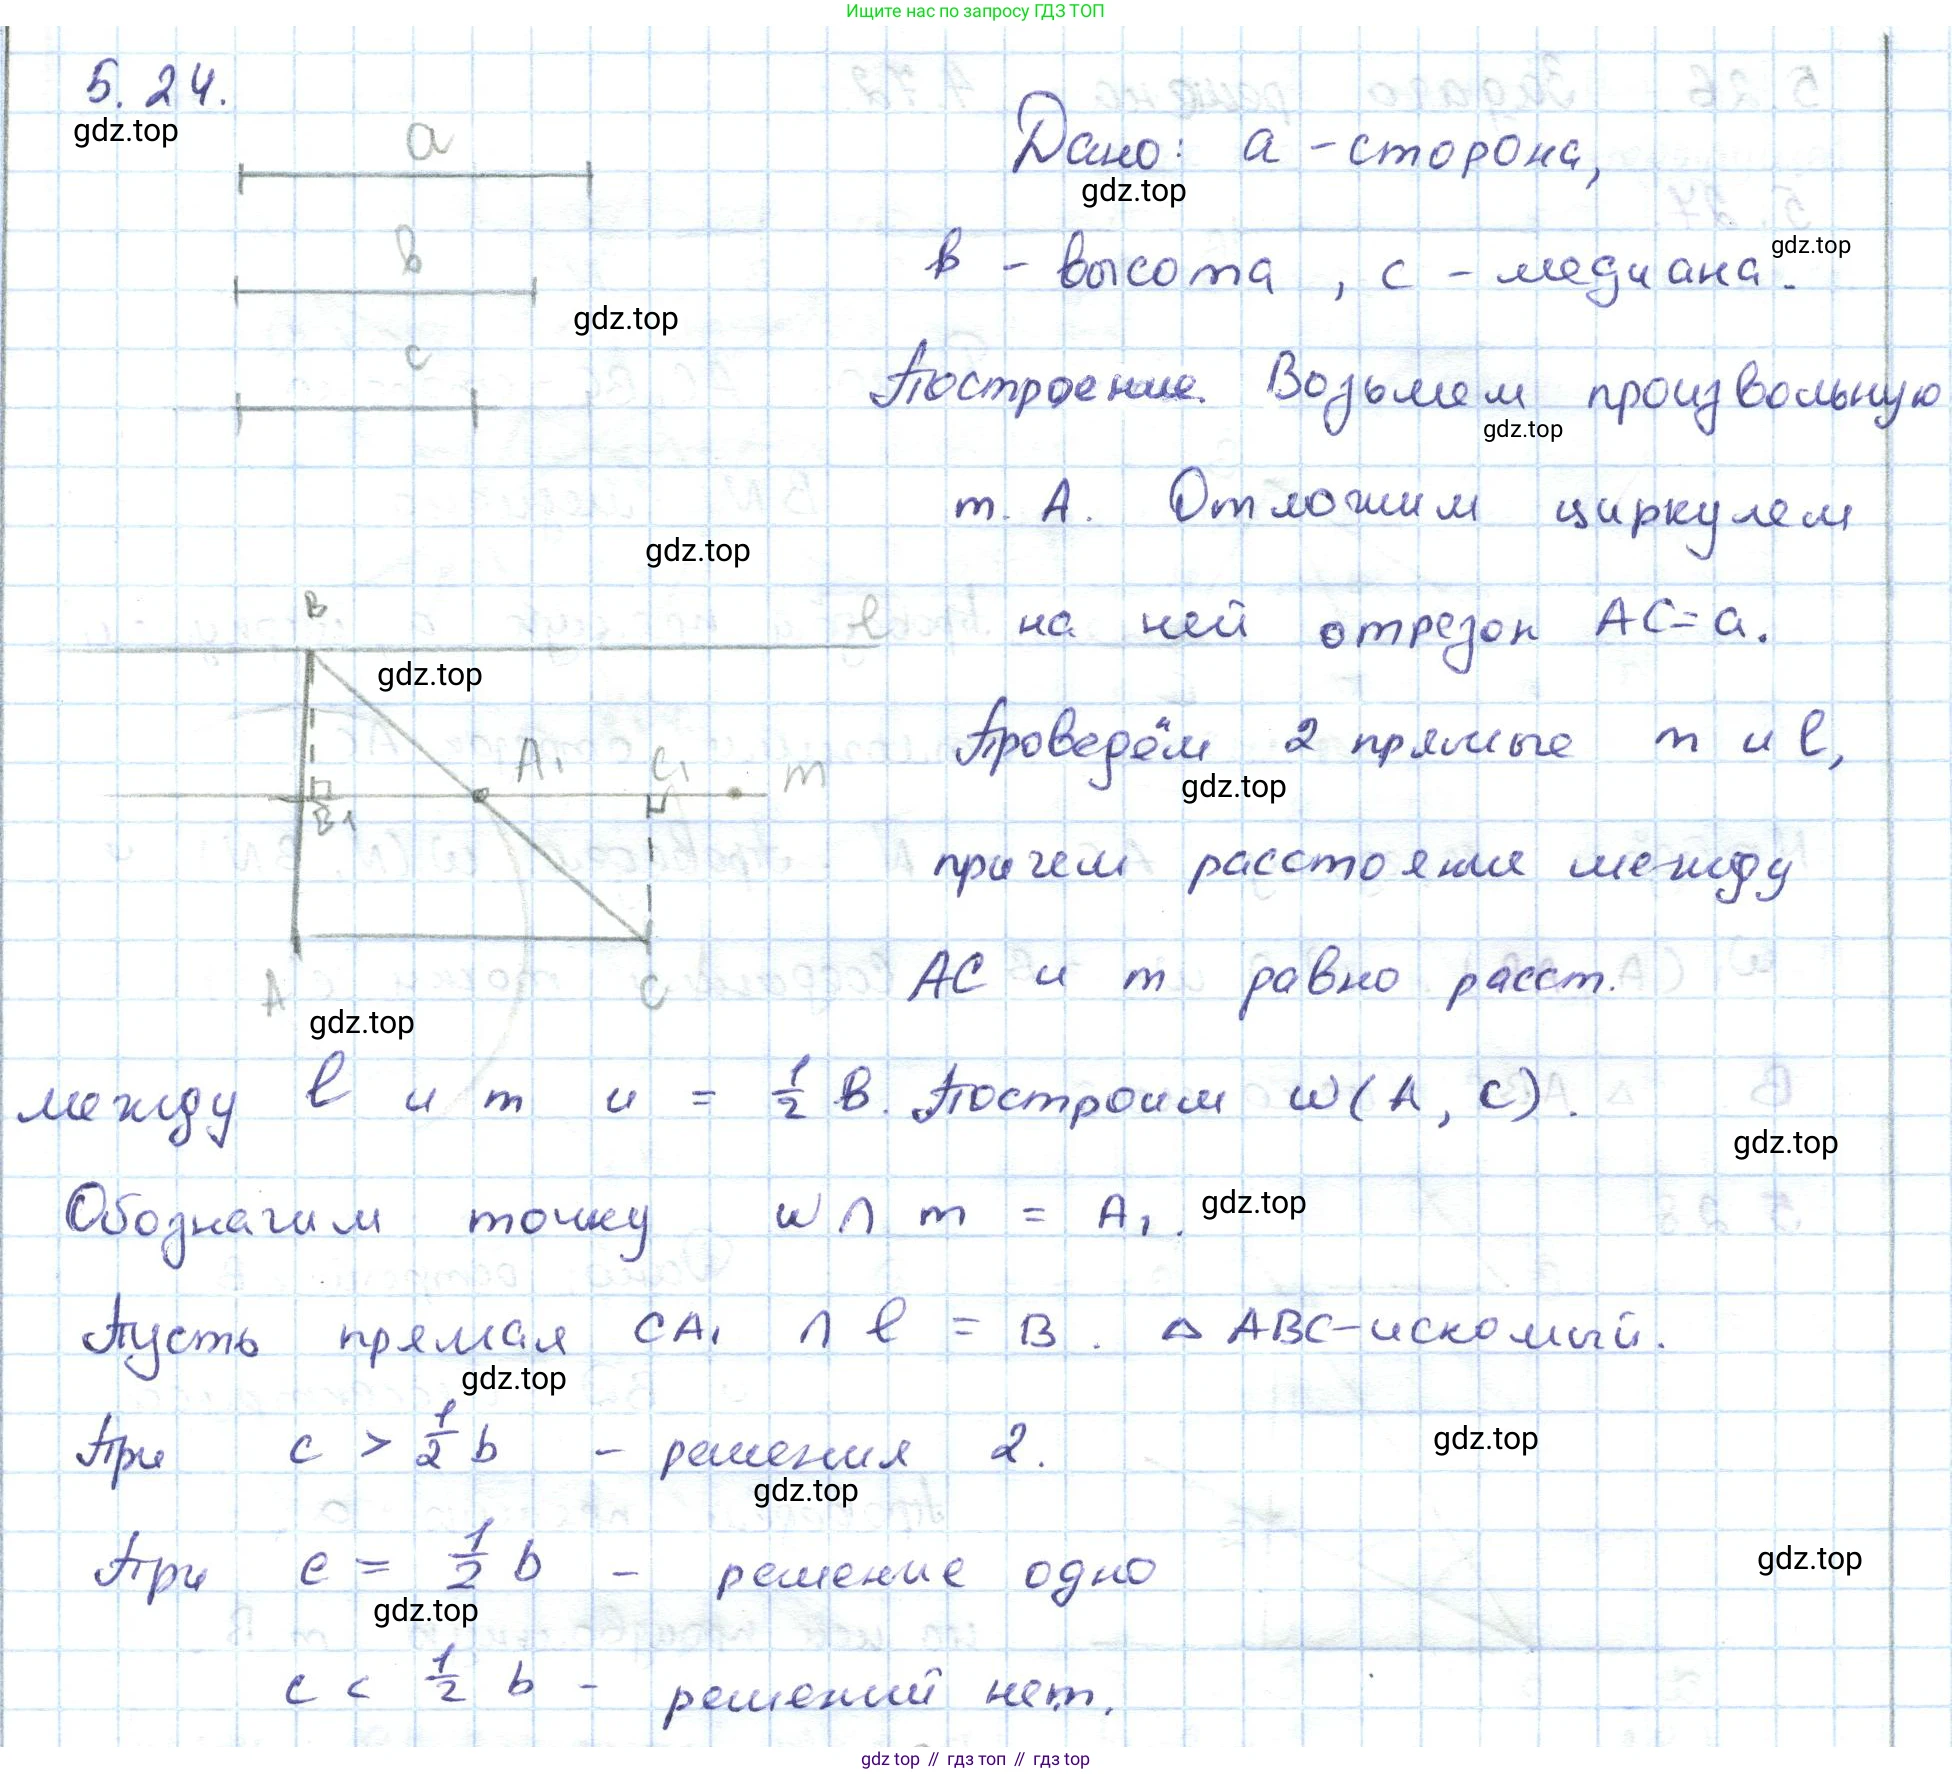 Ищите нас по запросу ГДЗ ТОП
5.24.
gdz.top
a
Дано: a - сторона,
gdz.top
b
в - высота, c - медиана.
gdz.top
gdz.top
c
Построение. Возьмем произвольную
gdz.top
т. A. Отложим циркулем
gdz.top
на ней отрезок AC=a.
B
l
gdz.top
Проведём 2 прямые m и l,
gdz.top
A₁
C₁
m
B₁
причем расстояние между
AC и m равно расст.
A
C
gdz.top
между l и m и = 1/2 в. Построим w(A, c).
gdz.top
Обозначим точку w∩m = A₁.
gdz.top
Пусть прямая CA₁ ∩ l = B. △ABC-искомый.
gdz.top
При c > 1/2 b - решения 2.
gdz.top
gdz.top
При c = 1/2 b - решение одно
gdz.top
gdz.top
c < 1/2 b - решений нет.
gdz top // гдз топ // гдз top